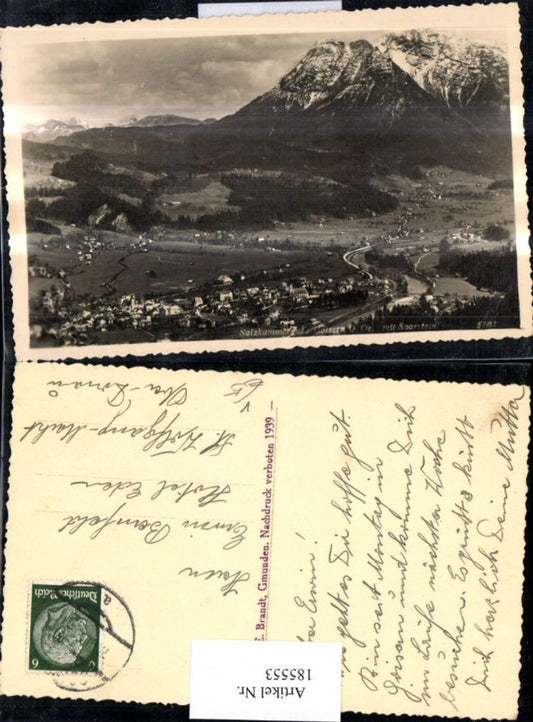 Salzkammergut. Goisern O. Oe. mit Saarstein 5207
Herrn
Erwin Bernfeld
Hotel Eden
St. Wolfgang-Markt
Ober-Donau
Deutsches Reich
6
E. Brandt, Gmunden. Nachdruck verboten 1939 —
Erwin!
geht es Dir hoffe gut
Bin seit Montag in
Goisern und komme Dich
im Laufe nächster Woche
besuchen. Es grüßt & küßt
Dich herzlich Deine Mutter
Artikel Nr.
185553